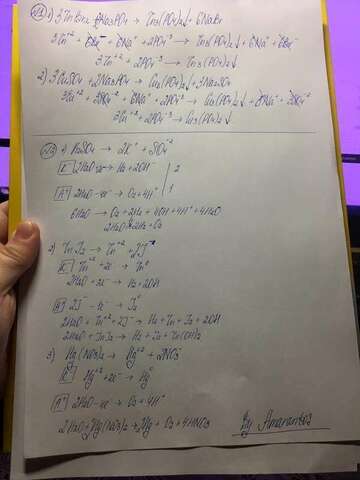 №1 1) 3ZnBr2 + 2Na3PO4 → Zn3(PO4)2↓ + 6NaBr
3Zn+2 + 6Br- + 6Na+ + 2PO4-3 → Zn3(PO4)2↓ + 6Na+ + 6Br-
3Zn+2 + 2PO4-3 → Zn3(PO4)2↓
2) 3CuSO4 + 2Na3PO4 → Cu3(PO4)2↓ + 3Na2SO4
3Cu+2 + 3SO4-2 + 6Na+ + 2PO4-3 → Cu3(PO4)2↓ + 6Na+ + 3SO4-2
3Cu+2 + 2PO4-3 → Cu3(PO4)2↓
№2 1) K2SO4 → 2K+ + SO4-2
K- 2H2O+2e- → H2 + 2OH- | 2
A+ 2H2O-4e- → O2 + 4H+ | 1
6H2O → O2 + 2H2 + 4OH + 4H+ + 4H2O
2H2O → 2H2 + O2
2) ZnI2 → Zn+2 + 2I-
K- Zn+2 + 2e- → Zn0
2H2O + 2e- → H2 + 2OH
A+ 2I- - 2e- → I2
2H2O + Zn+2 + 2I- → H2 + Zn + I2 + 2OH
2H2O + ZnI2 → H2 + I2 + Zn(OH)2
3) Hg(NO3)2 → Hg+2 + 2NO3-
K- Hg+2 + 2e- → Hg0
A+ 2H2O-4e- → O2 + 4H+
2H2O + 2Hg(NO3)2 → 2Hg + O2 + 4HNO3
By Amarantos